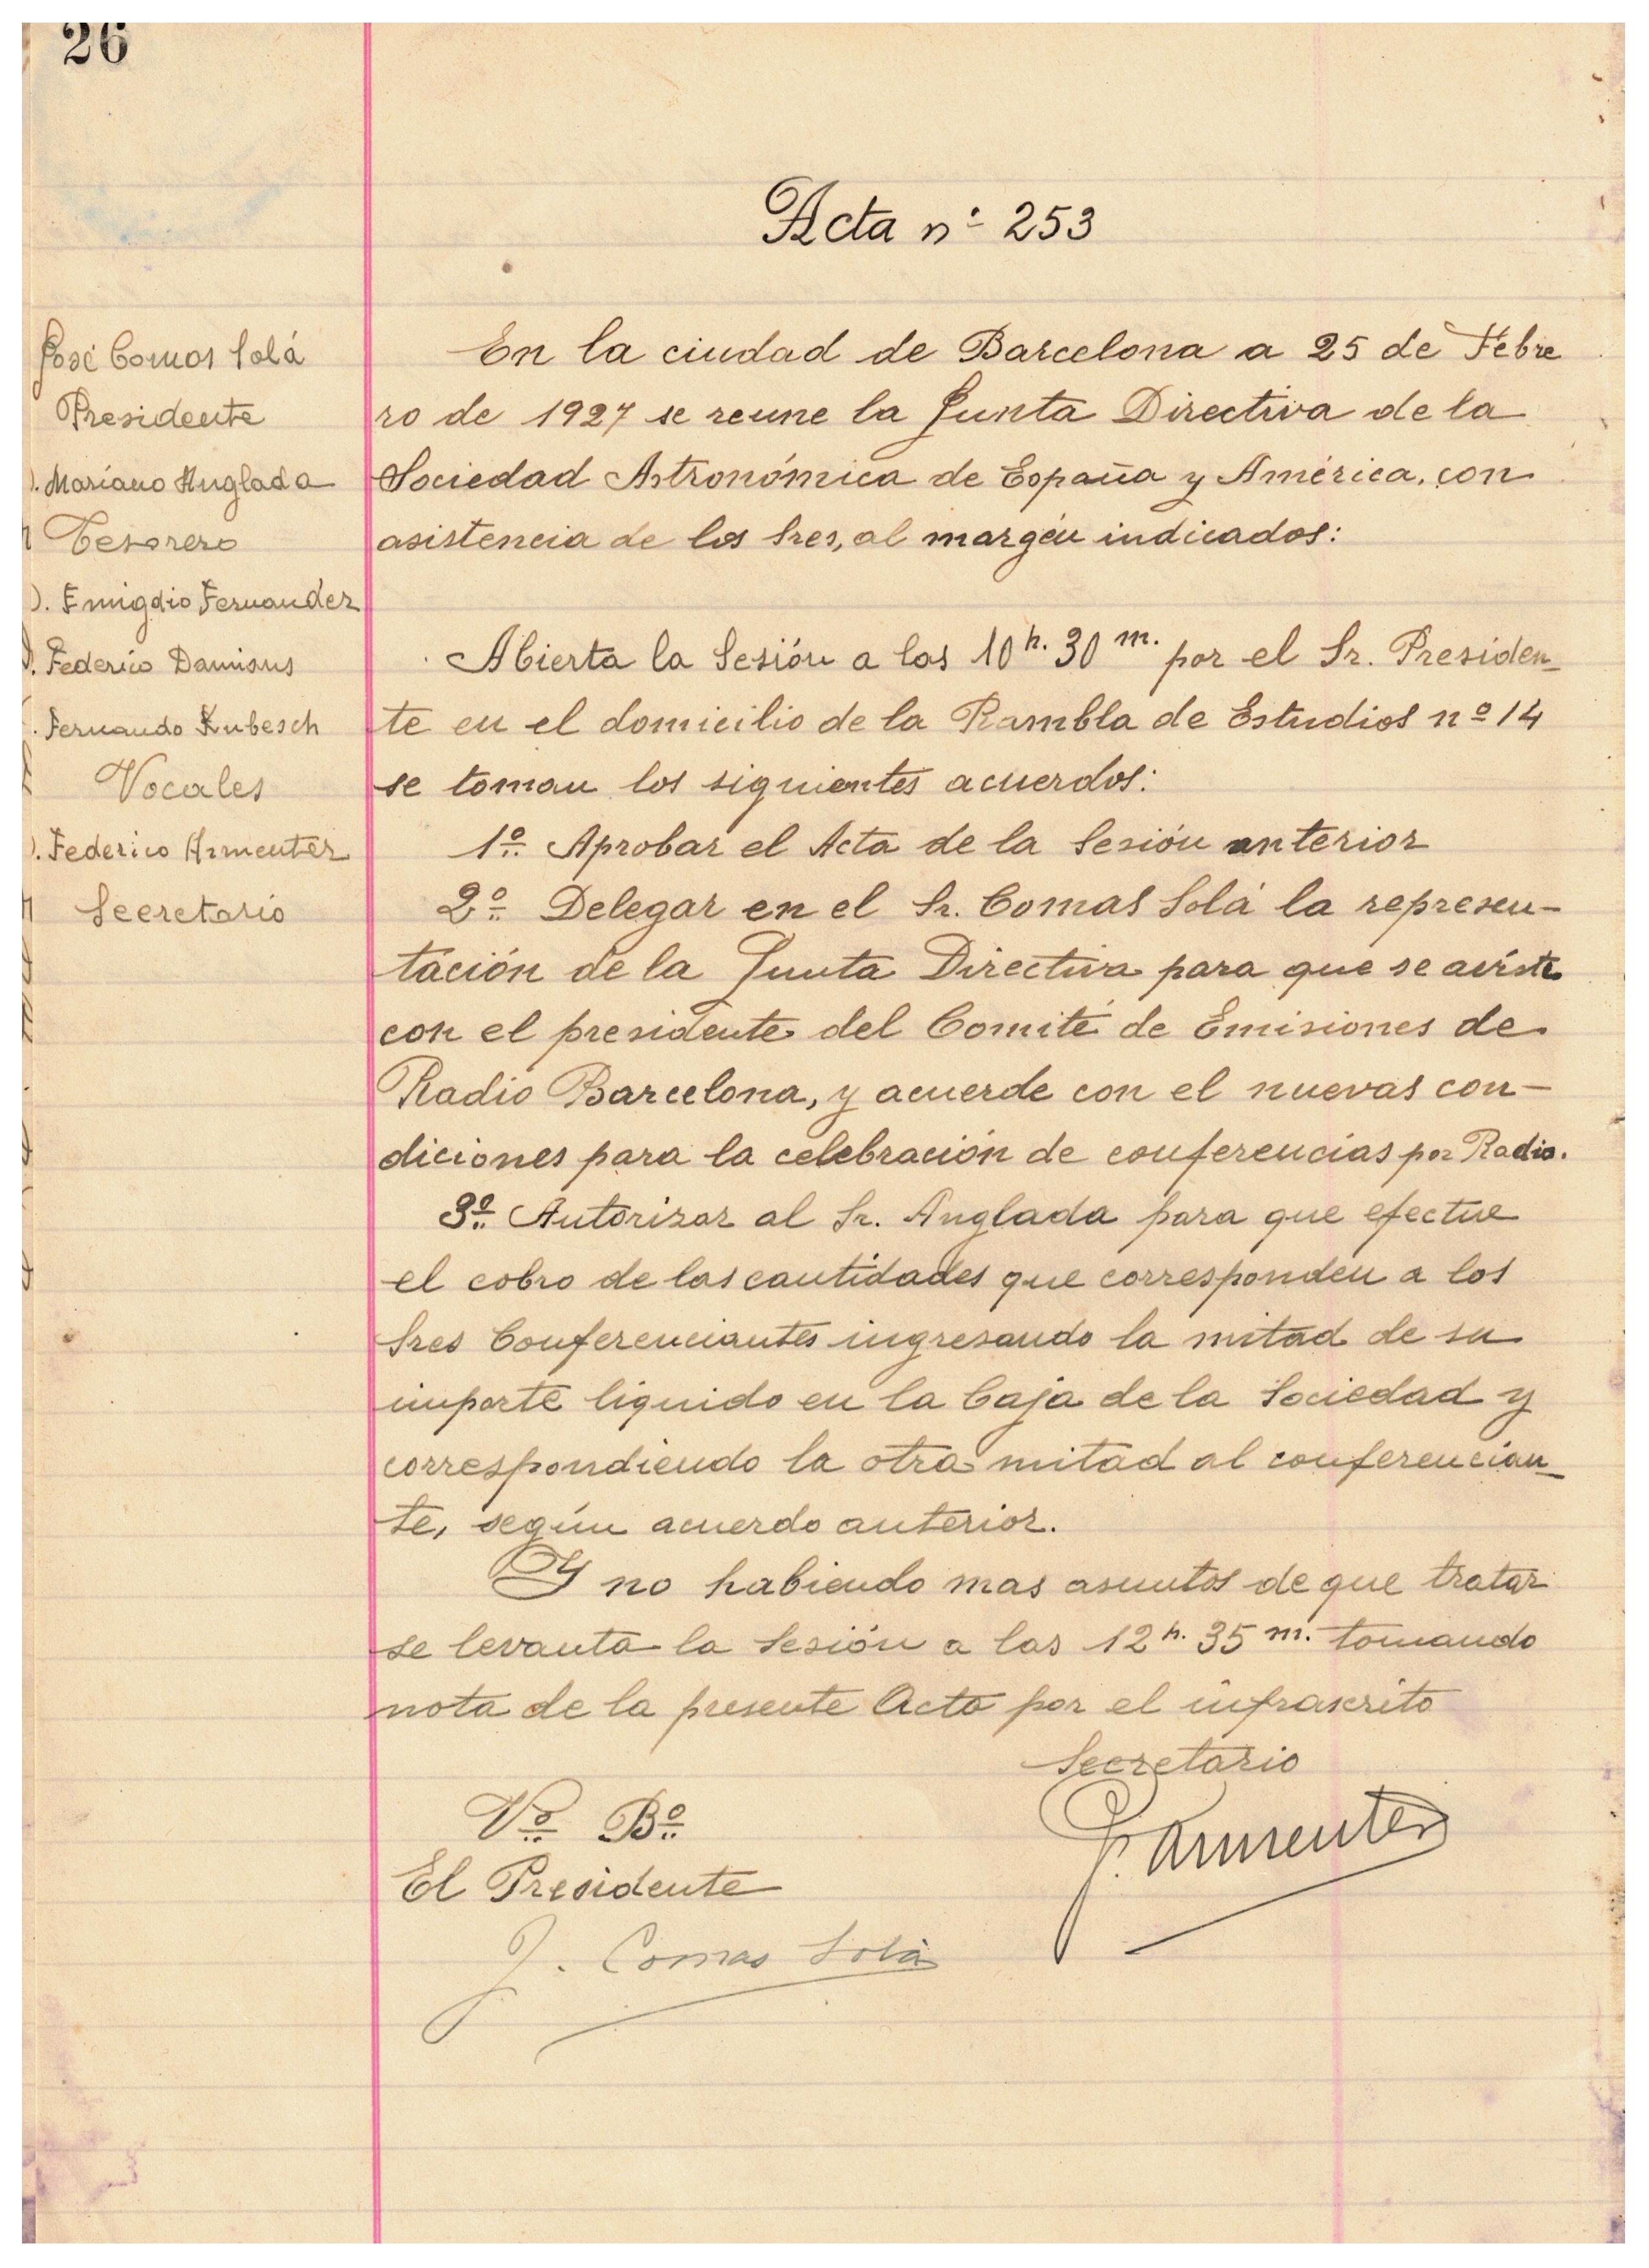 26
Acta nº 253
José Comas Solá
Presidente
D. Mariano Anglada
Tesorero
D. Emigdio Fernandez
D. Federico Damians
D. Fernando Kubesch
Vocales
D. Federico Armenter
Secretario
En la ciudad de Barcelona a 25 de Febre
ro de 1927 se reune la Junta Directiva de la
Sociedad Astronómica de España y América, con
asistencia de los Sres, al margén indicados:
Abierta la Sesión a las 10 h. 30 m. por el Sr. Presiden-
te en el domicilio de la Rambla de Estudios nº 14
se toman los siguientes acuerdos:
1º Aprobar el Acta de la Sesión anterior
2º Delegar en el Sr. Comas Solá la represen-
tación de la Junta Directiva para que se aviste
con el presidente del Comité de Emisiones de
Radio Barcelona, y acuerde con el nuevas con-
diciones para la celebración de conferencias por Radio.
3º Autorizar al Sr. Anglada para que efectue
el cobro de las cantidades que corresponden a los
Sres Conferenciantes ingresando la mitad de su
importe liquido en la Caja de la Sociedad y
correspondiendo la otra mitad al conferencian-
te, según acuerdo anterior.
Y no habiendo mas asuntos de que tratar
se levanta la Sesión a las 12 h. 35 m. tomando
nota de la presente Acta por el infrascrito
Secretario
Vº Bº
F. Armenter
El Presidente
J. Comas Solá